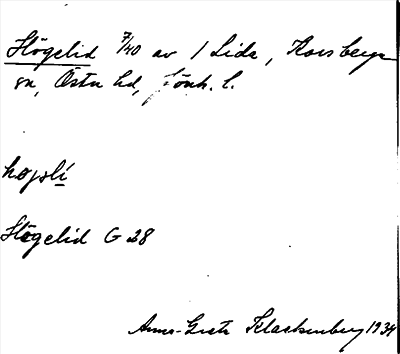 Högelid 7/40 av 1 Lida, Korsberga
sn, Östra hd, Jönk. l.
høgslí
Högelid G 28
Anna-Greta Klackenberg 1934